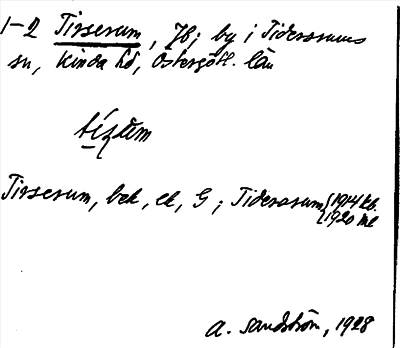 1-2 Tirserum, Jb; by i Tidersrums
sn, Kinda hd, Östergötl. län
Tirserum, bek, el, G; Tidersrum {1914 kb.
{1920 ml
A. Sandström, 1928